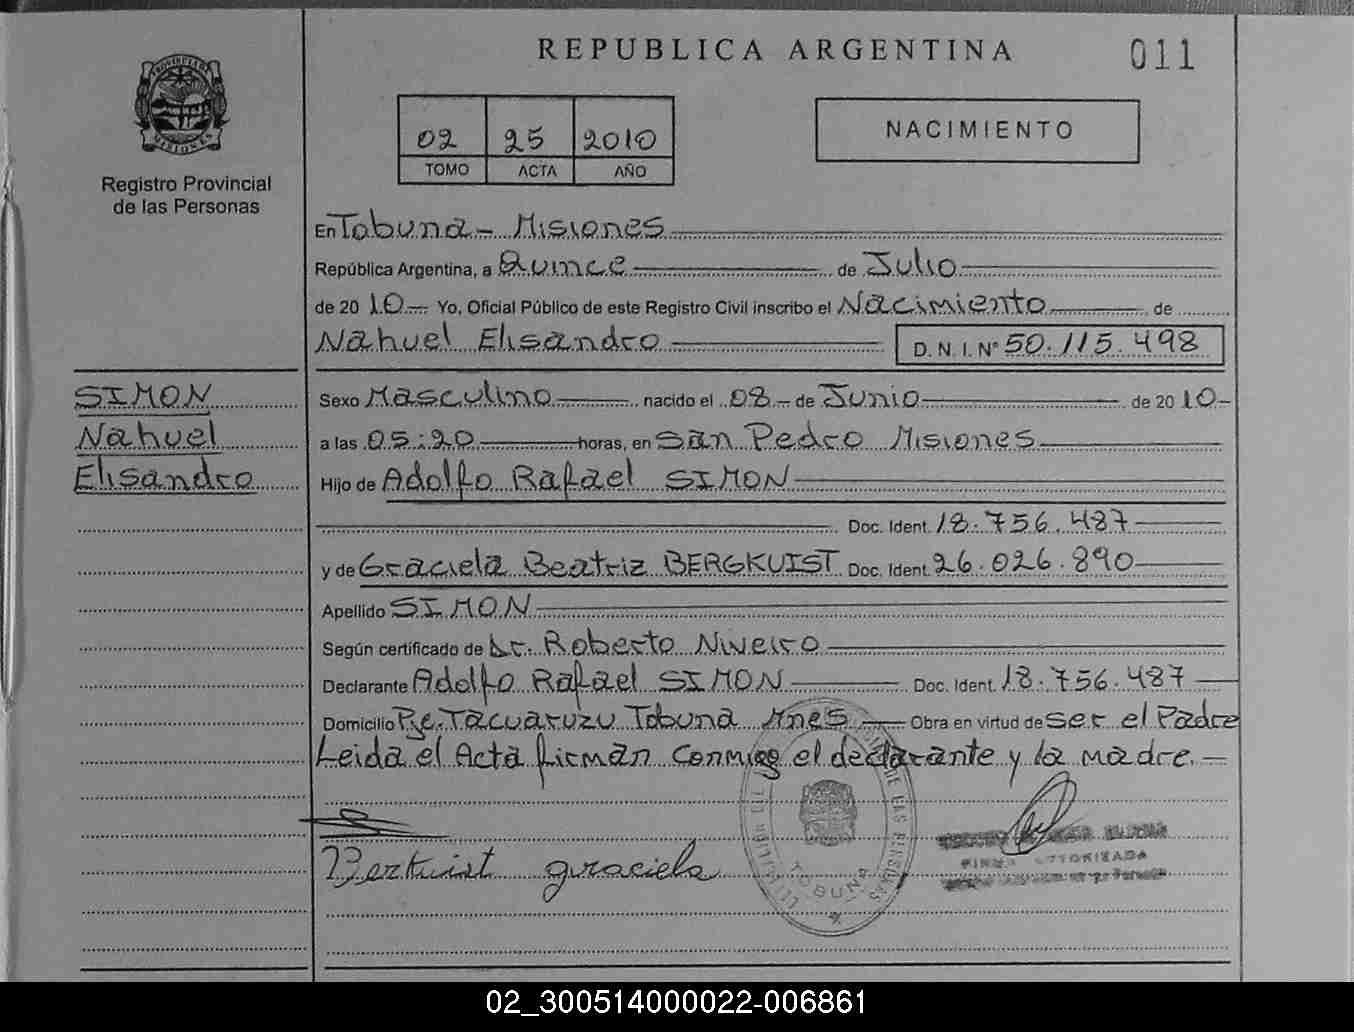 REPUBLICA ARGENTINA
011
PROVINCIA DE MISIONES
Registro Provincial
de las Personas
02 25 2010
TOMO ACTA AÑO
NACIMIENTO
En Tobuna - Misiones
República Argentina, a Quince de Julio
de 20 10 Yo, Oficial Público de este Registro Civil inscribo el Nacimiento de
Nahuel Elisandro D.N.I. Nº 50.115.498
SIMON
Nahuel
Elisandro
Sexo Masculino nacido el 08 de Junio de 20 10
a las 05:20 horas, en San Pedro Misiones
Hijo de Adolfo Rafael SIMON
Doc. Ident. 18.756.487
y de Graciela Beatriz BERGKUIST Doc. Ident. 26.026.890
Apellido SIMON
Según certificado de Dr. Roberto Niveiro
Declarante Adolfo Rafael SIMON Doc. Ident. 18.756.487
Domicilio Pje. Tacuaruzu Tobuna Mnes Obra en virtud de ser el Padre
Leida el Acta firman conmigo el declarante y la madre.
Berkuist graciela
DE LAS PERSONAS
TOBUNA
FIRMA AUTORIZADA
02_300514000022-006861